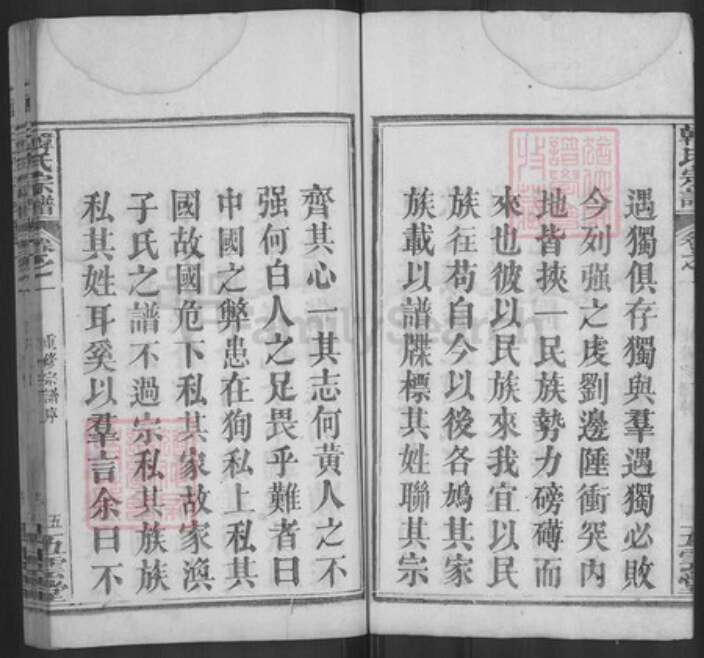 遇獨俱存獨與羣遇獨必敗
今列强之虔劉邊陲衝突内
地皆挾一民族勢力磅礴而
來也彼以民族來我宜以民
族往苟自今以後各鳩其家
族載以譜牒標其姓聯其宗
韓氏宗譜
卷之一
五雲堂
齊其心一其志何黃人之不
强何白人之足畏乎難者曰
中國之弊患在狥私上私其
國故國危下私其家故家渙
子氏之譜不過宗私其族族
私其姓耳奚以羣言余曰不
韓氏宗譜
卷之一
重修宗譜序
五
五雲堂
FamilySearch